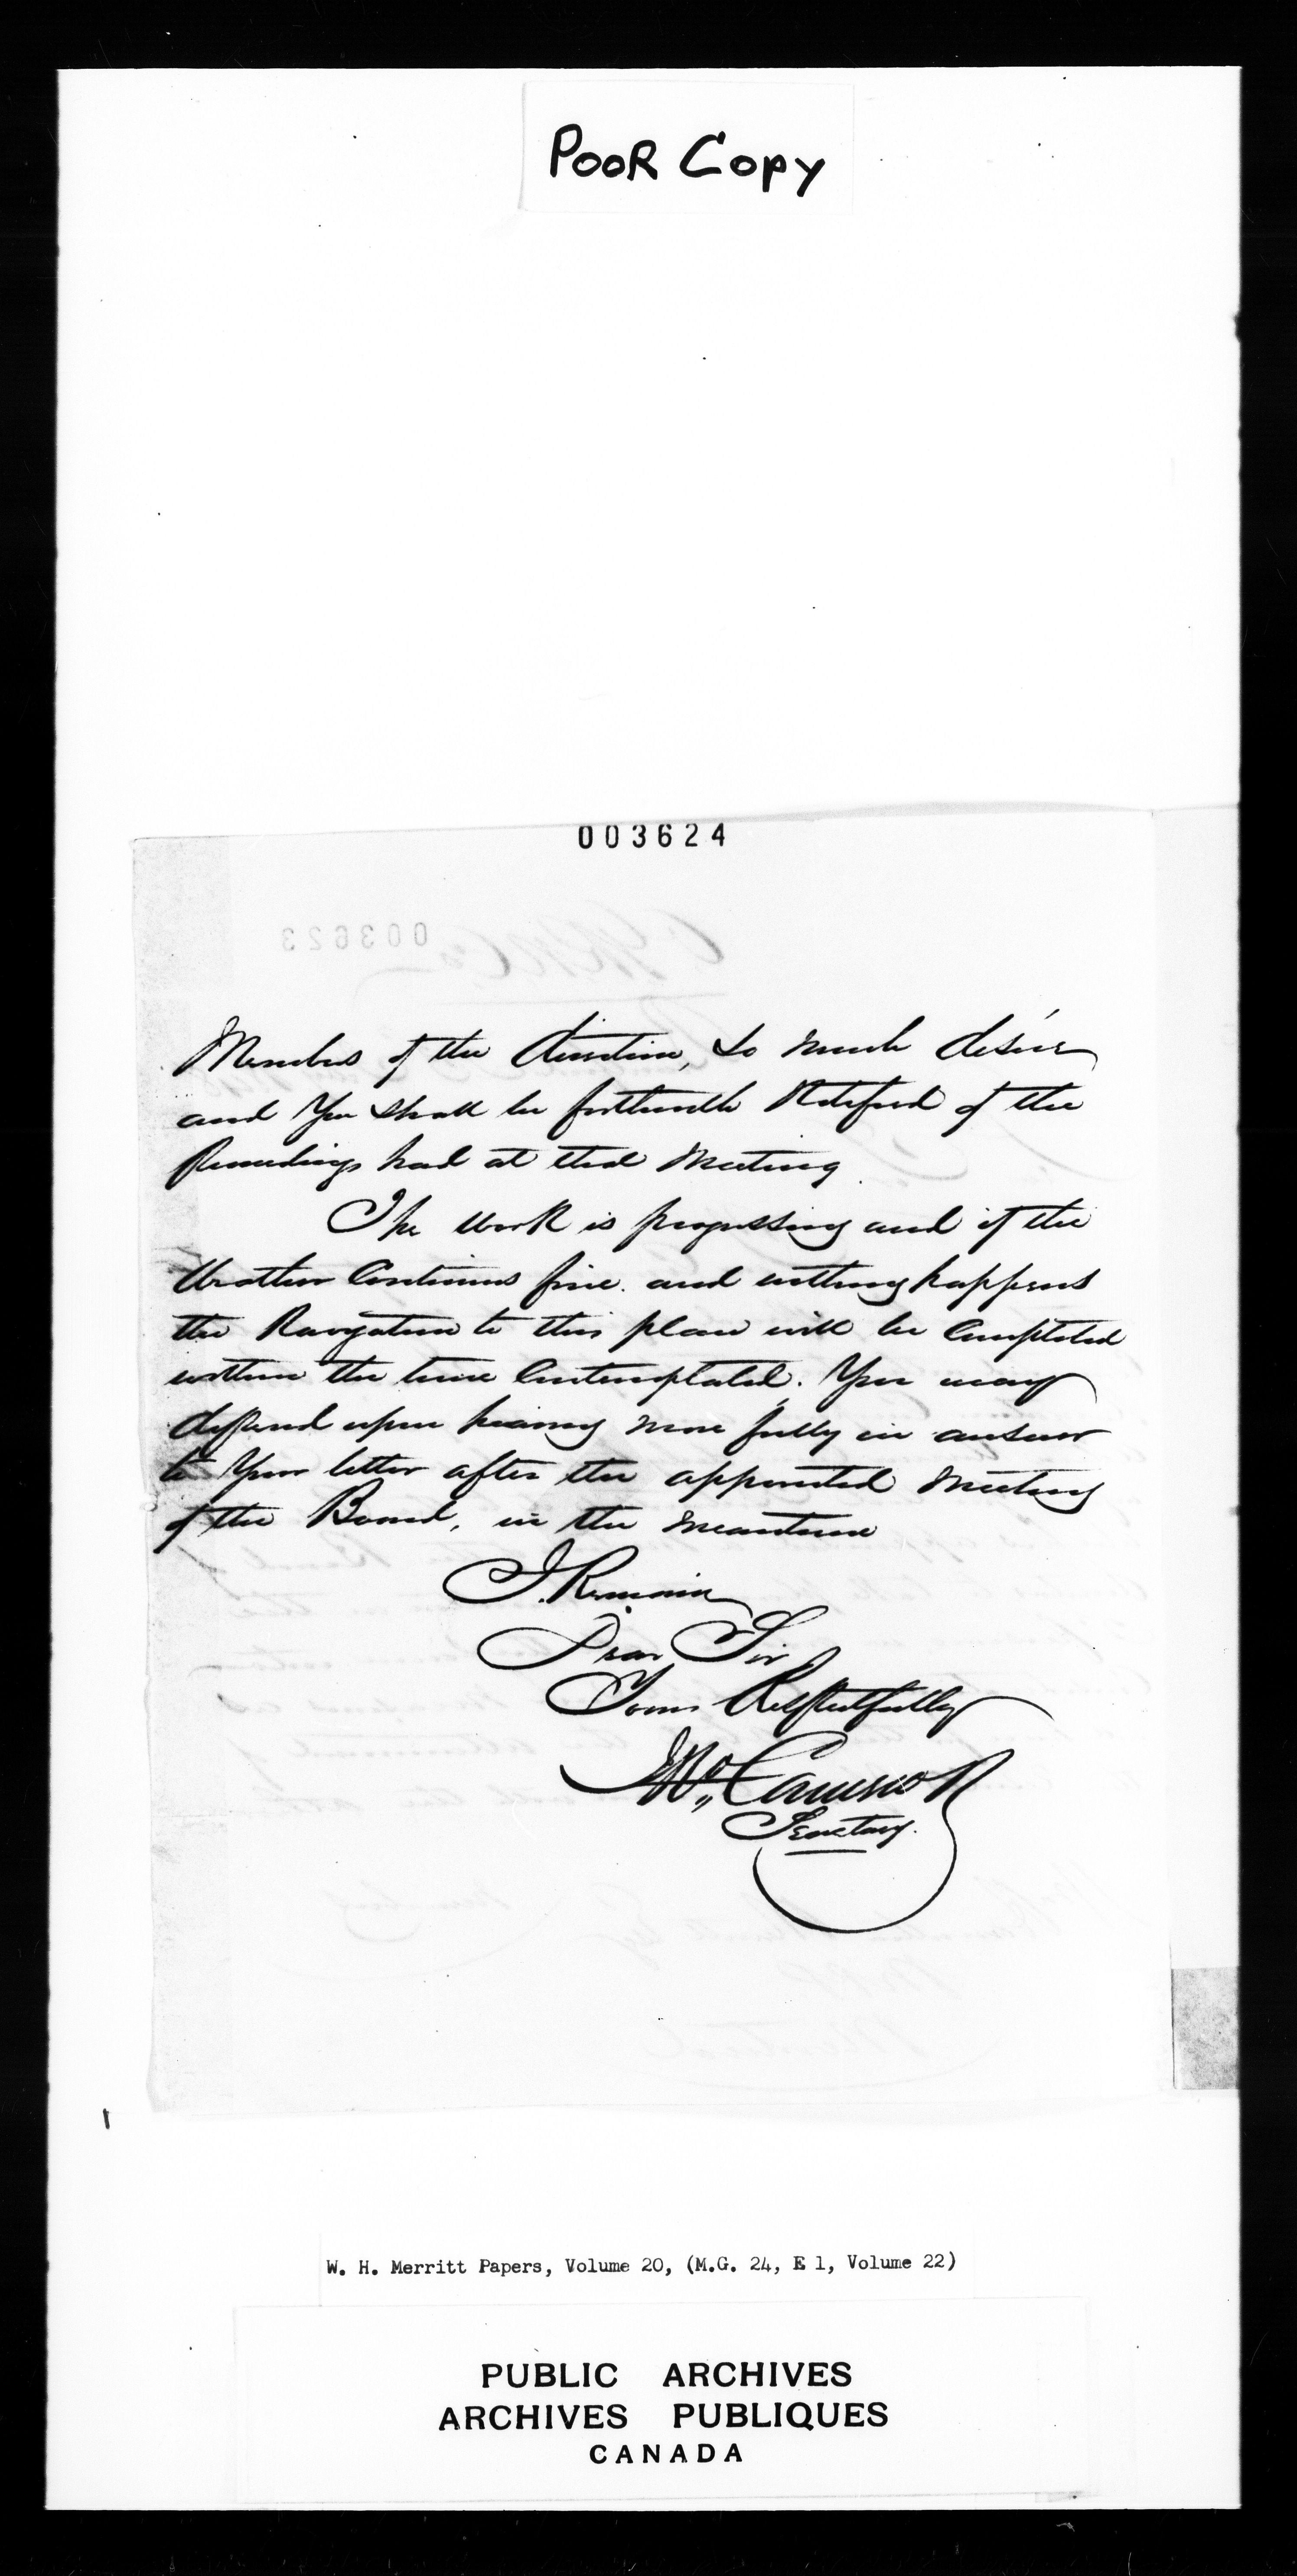 POOR COPY
003624
003623
Members of the direction, so much desire
and You shall be forthwith Notified of the
Proceedings had at that Meeting
The work is progressing and if the
Weather Continues fine. and nothing happens
the Navigation to this place will be Completed
within the time Contemplated. You may
depend upon hearing more fully in answer
to Your letter after the appointed Meeting
of the Board, in the meantime
I Remain
Dear Sir
Yours Respectfully
Secretary.
W. H. Merritt Papers, Volume 20, (M.G. 24, E 1, Volume 22)
PUBLIC ARCHIVES
ARCHIVES PUBLIQUES
CANADA